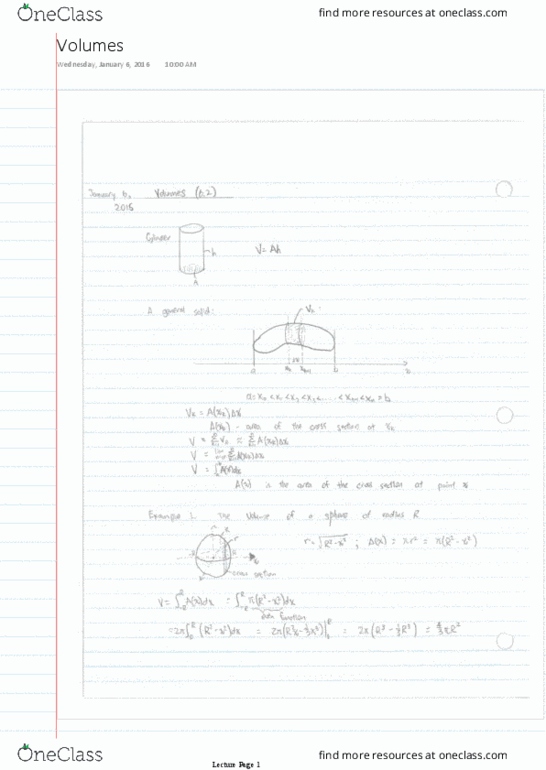 OneClass
find more resources at oneclass.com
Volumes
Wednesday, January 6, 2016 10:00 AM
January 6, Volumes (6.2)
2016
Cylinder
h
V = Ah
A
A general solid:
Vk
a b
a = x₀ < x₁ < x₂ < x₃ < ... < xₙ₋₁ < xₙ = b
Vk = A(xk)Δx
A(xk) - area of the cross section at xk
V = ∫ₐᵇ A(x)dx
A(x) is the area of the cross section at point x
Example 1. The volume of a sphere of radius R
r = √(R² - x²) ; A(x) = πr² = π(R² - x²)
cross section
V = ∫₋ᴿᴿ A(x)dx = ∫₋ᴿᴿ π(R² - x²)dx
even function
= 2π∫₀ᴿ (R² - x²)dx = 2π(R²x - ⅓x³)|₀ᴿ = 2π(R³ - ⅓R³) = 4/3 πR³
OneClass
find more resources at oneclass.com
Lecture Page 1